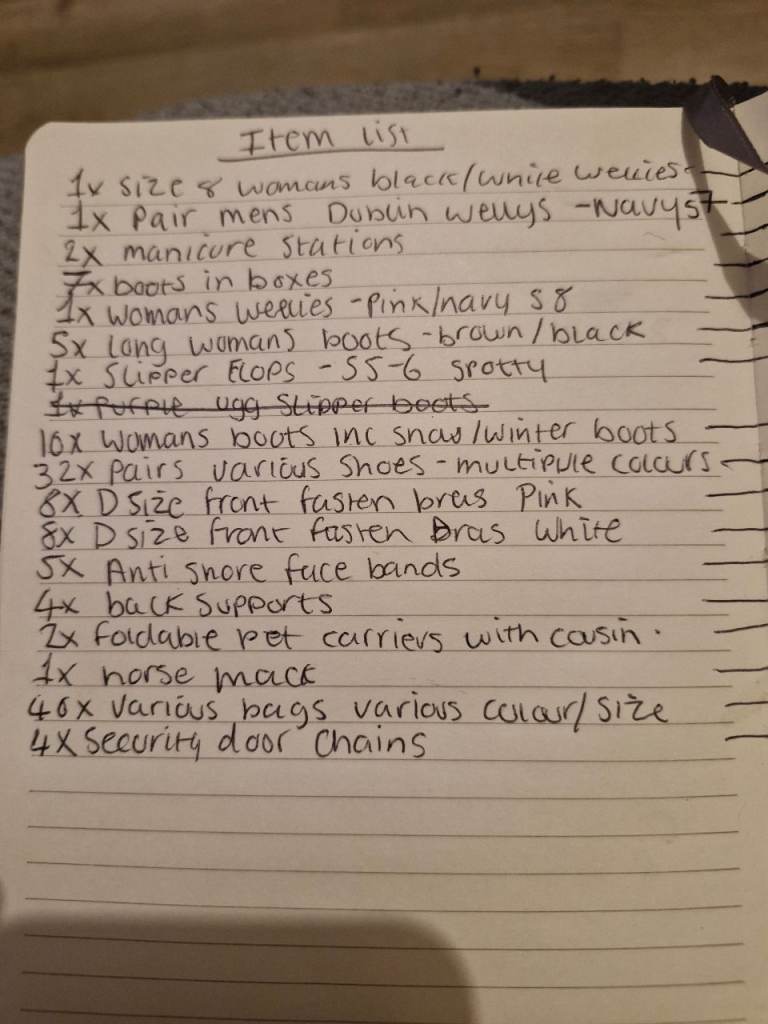 Item list
1x size 8 womans black/white wellies
1x Pair mens Dublin wellys - Navy s7
2x manicure stations
7x boots in boxes
1x womans wellies - pink/navy S 8
5x long womans boots - brown/black
1x slipper flops - S5-6 spotty
1x purple ugg slipper boots
10x womans boots inc snow/winter boots
32x pairs various shoes - multipule colours
8x D size front fasten bras Pink
8x D size front fasten Bras White
5x Anti snore face bands
4x back supports
2x foldable pet carriers with cousin.
1x horse mack
40x various bags various colour/size
4x security door chains